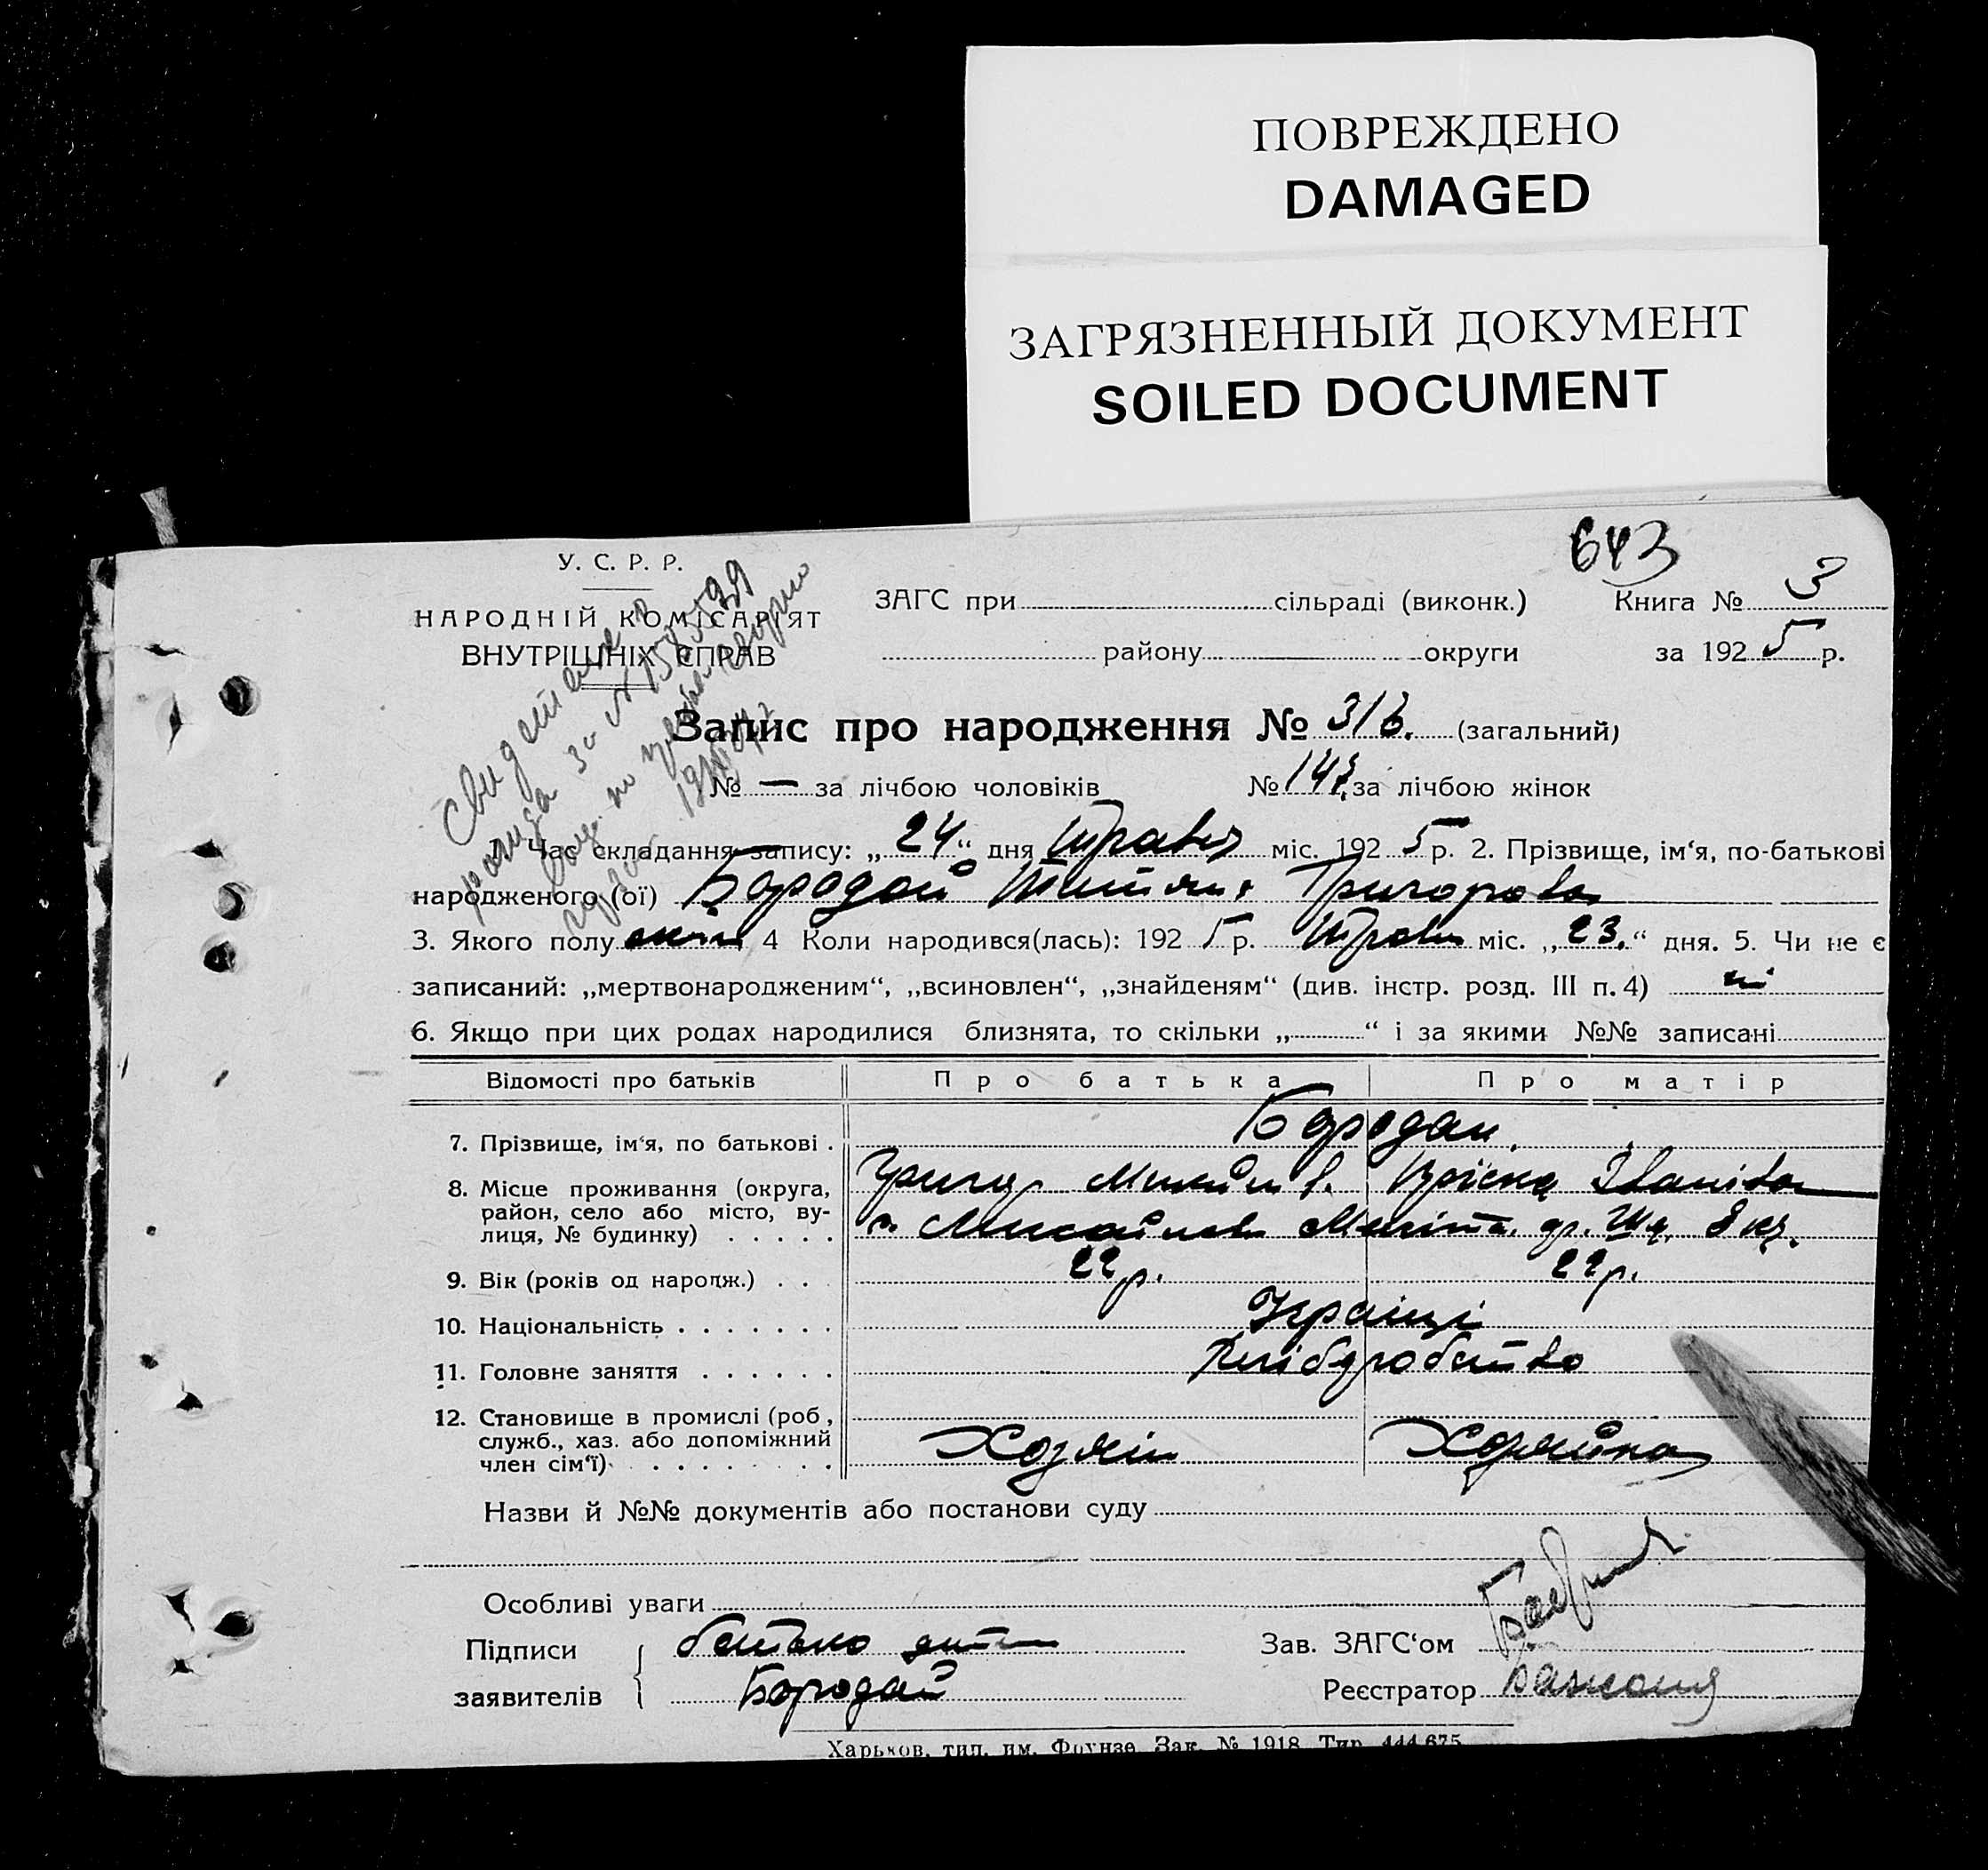 ПОВРЕЖДЕНО
DAMAGED
ЗАГРЯЗНЕННЫЙ ДОКУМЕНТ
SOILED DOCUMENT
643
У. С. Р. Р.
НАРОДНІЙ КОМІСАРІЯТ
ВНУТРІШНІХ СПРАВ
ЗАГС при сільраді (виконк.) Книга № 3
району округи за 1925 р.
Запис про народження № 316. (загальний)
№ — за лічбою чоловіків № за лічбою жінок
1. Час складання запису: „24“ дня Травня міс. 1925 р. 2. Прізвище, ім‘я, по-батькові
народженого (ої) Бородай Григорова
3. Якого полу 4 Коли народився(лась): 1925 р. Травня міс. „23.“ дня. 5. Чи не є
записаний: „мертвонародженим“, „всиновлен“, „знайденям“ (див. інстр. розд. III п. 4) ні
6. Якщо при цих родах народилися близнята, то скільки „ “ і за якими №№ записані
Відомості про батьків Про батька Про матір
7. Прізвище, ім‘я, по батькові . Бородаи.
8. Місце проживання (округа,
район, село або місто, ву-
лиця, № будинку) . . . . .
Іванівна
9. Вік (років од народж.) . . . 22 р. 22 р.
10. Національність . . . . . . . Українці
11. Головне заняття . . . . . . Хліборобство
12. Становище в промислі (роб.,
служб., хаз. або допоміжний
член сім‘ї) . . . . . . . .
Хозяін Хозяйка
Назви й №№ документів або постанови суду
Особливі уваги
Підписи
заявителів
батько
Бородай
Зав. ЗАГС‘ом
Реєстратор
Харьков, тип. им. Фрунзе. Зак. № 1918. Тир. 444.675